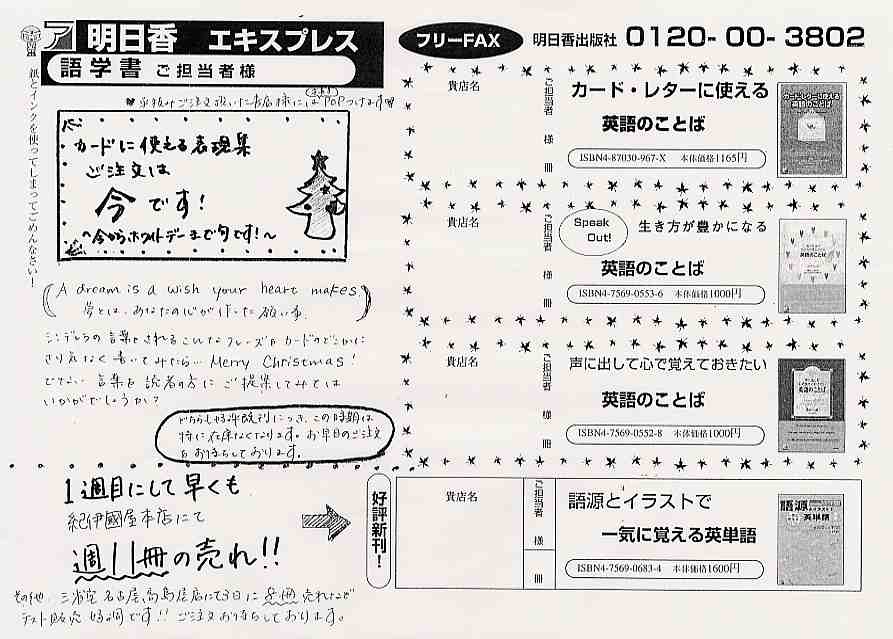 ア 明日香 エキスプレス
語学書 ご担当者様
紙とインクを使ってしまってごめんなさい！
カードに使える表現集
ご注文は
今です！
～今からホワイトデーまで旬です！～
A dream is a wish your heart makes
夢とは、あなたの心が作った願い事
シンデレラの言葉とされるこんなフレーズをカードのどこかに
さり気なく書いてみたら… Merry Christmas!
すてきな言葉を読者の方にご提案してみては
いかがでしょうか？
どちらも好評既刊につき、この時期は
特に在庫なくなります。お早目のご注文
をお待ちしております。
1週目にして早くも
紀伊國屋本店にて
週11冊の売れ!!
テスト販売 好調です!! ご注文お待ちしております。
フリーFAX 明日香出版社 0120-00-3802
貴店名
ご担当者 様 冊
カード・レターに使える
英語のことば
ISBN4-87030-967-X 本体価格1165円
カード・レターに使える
英語のことば
貴店名
ご担当者 様 冊
Speak Out!
生き方が豊かになる
英語のことば
ISBN4-7569-0553-6 本体価格1000円
英語のことば
貴店名
ご担当者 様 冊
声に出して心で覚えておきたい
英語のことば
ISBN4-7569-0552-8 本体価格1000円
英語のことば
好評新刊！
貴店名
ご担当者 様 冊
語源とイラストで
一気に覚える英単語
ISBN4-7569-0683-4 本体価格1600円
語源
英単語